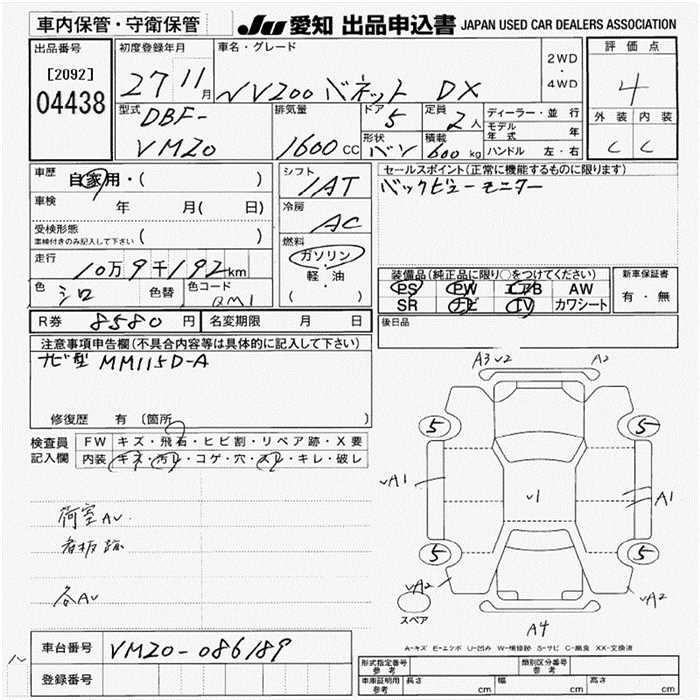 車内保管・守衛保管
JU 愛知 出品申込書 JAPAN USED CAR DEALERS ASSOCIATION
出品番号
[2092]
04438
初度登録年月
27 11月
車名・グレード
NV200 バネット DX
2WD
・
4WD
評価点
4
外装 内装
C C
型式
DBF-
VM20
排気量
1600 CC
ドア
5
定員
2人
形状
バン
積載
600 kg
ディーラー・並行
モデル年式 年
ハンドル 左・右
車歴
自家用・( )
車検 年 月( 日)
受検形態
車検付きのみ記入して下さい ( )
走行
10万9千192km
色
シロ
色替
色コード
QM1
シフト
IAT
冷房
AC
燃料
ガソリン
・
軽・油
( )
セールスポイント(正常に機能するものに限ります)
バックビューモニター
装備品(純正品に限り○をつけてください)
PS PW エアB AW
SR ナビ TV カワシート
新車保証書
有・無
R券 8580 円 名変期限 月 日
後日品
注意事項申告欄(不具合内容等は具体的に記入して下さい)
ナビ型 MM115D-A
修復歴 有 (箇所
検査員記入欄
FW キズ・飛石・ヒビ割・リペア跡・X要
内装 キズ・汚レ・コゲ・穴・スレ・キレ・破レ
荷室AU
看板跡
各AU
A3 U2 A2
5 5
UA1 U1 A1
5 5
UA2 UA2
スペア
A4
A-キズ E-エクボ U-凹み W-補修跡 S-サビ C-腐食 XX-交換済
車台番号 VM20-086189
登録番号
形式指定番号
参考
類別区分番号
参考
車庫証明用
参考
長さ cm 幅 cm 高さ cm